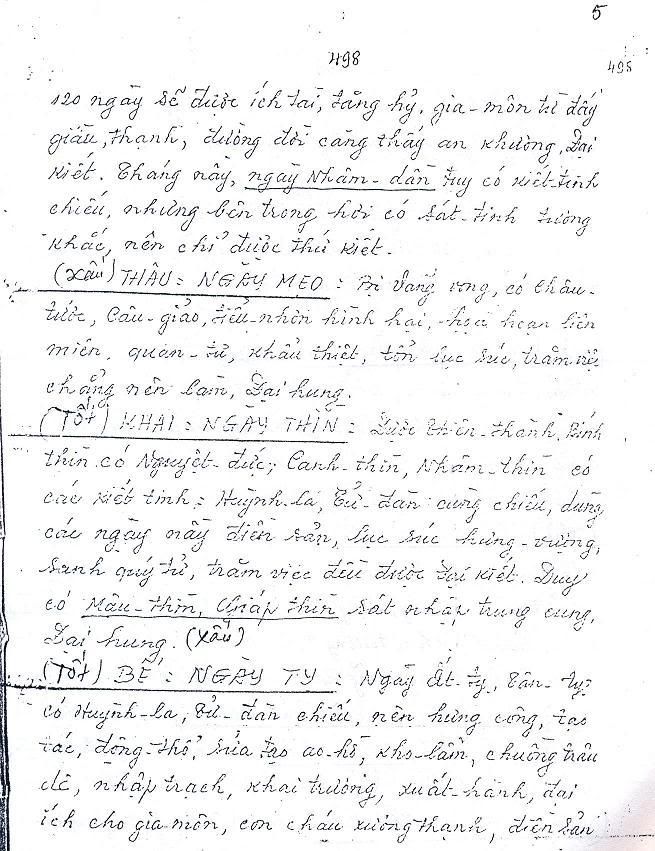 5
498
498
120 ngày sẽ được ích tài, tăng hỷ, gia-môn từ đấy
giầu, thạnh, đường đời càng thấy an khương, Đại
kiết. Tháng nầy, ngày Nhâm-dần tuy có kiết-tinh
chiếu, nhưng bên trong hơi có sát-tinh tương
khắc, nên chỉ được thứ kiết.
(xấu) THÂU: NGÀY MẸO: Bị Vãng vong, có Châu-
tước, Câu-giảo, tiểu-nhơn hình hại, họa hoạn liên
miên, quan-tư, khẩu thiệt, tổn lục súc, trăm việc
chẳng nên làm, Đại hung.
(Tốt) KHAI: NGÀY THÌN: Được Thiên-thành, Bính
thìn có Nguyệt-đức; Canh-thìn, Nhâm-thìn có
các kiết tinh: Huỳnh-la, Tử-đàn cùng chiếu, dùng
các ngày nầy điền sản, lục súc hưng-vượng,
sanh quý tử, trăm việc đều được đại kiết. Duy
có Mậu-thìn, Giáp thìn sát nhập trung cung,
Đại hung. (xấu)
(Tốt) BẾ: NGÀY TỴ: Ngày Ất-tỵ, Tân-tỵ;
có Huỳnh-la, Tử-đàn chiếu, nên hưng công, tạo
tác, động-thổ, sửa tạo ao-hồ, kho-lẫm, chuồng trâu
dê, nhập trạch, khai trương, xuất-hành, đại
ích cho gia môn, con cháu xương thạnh, điền sản